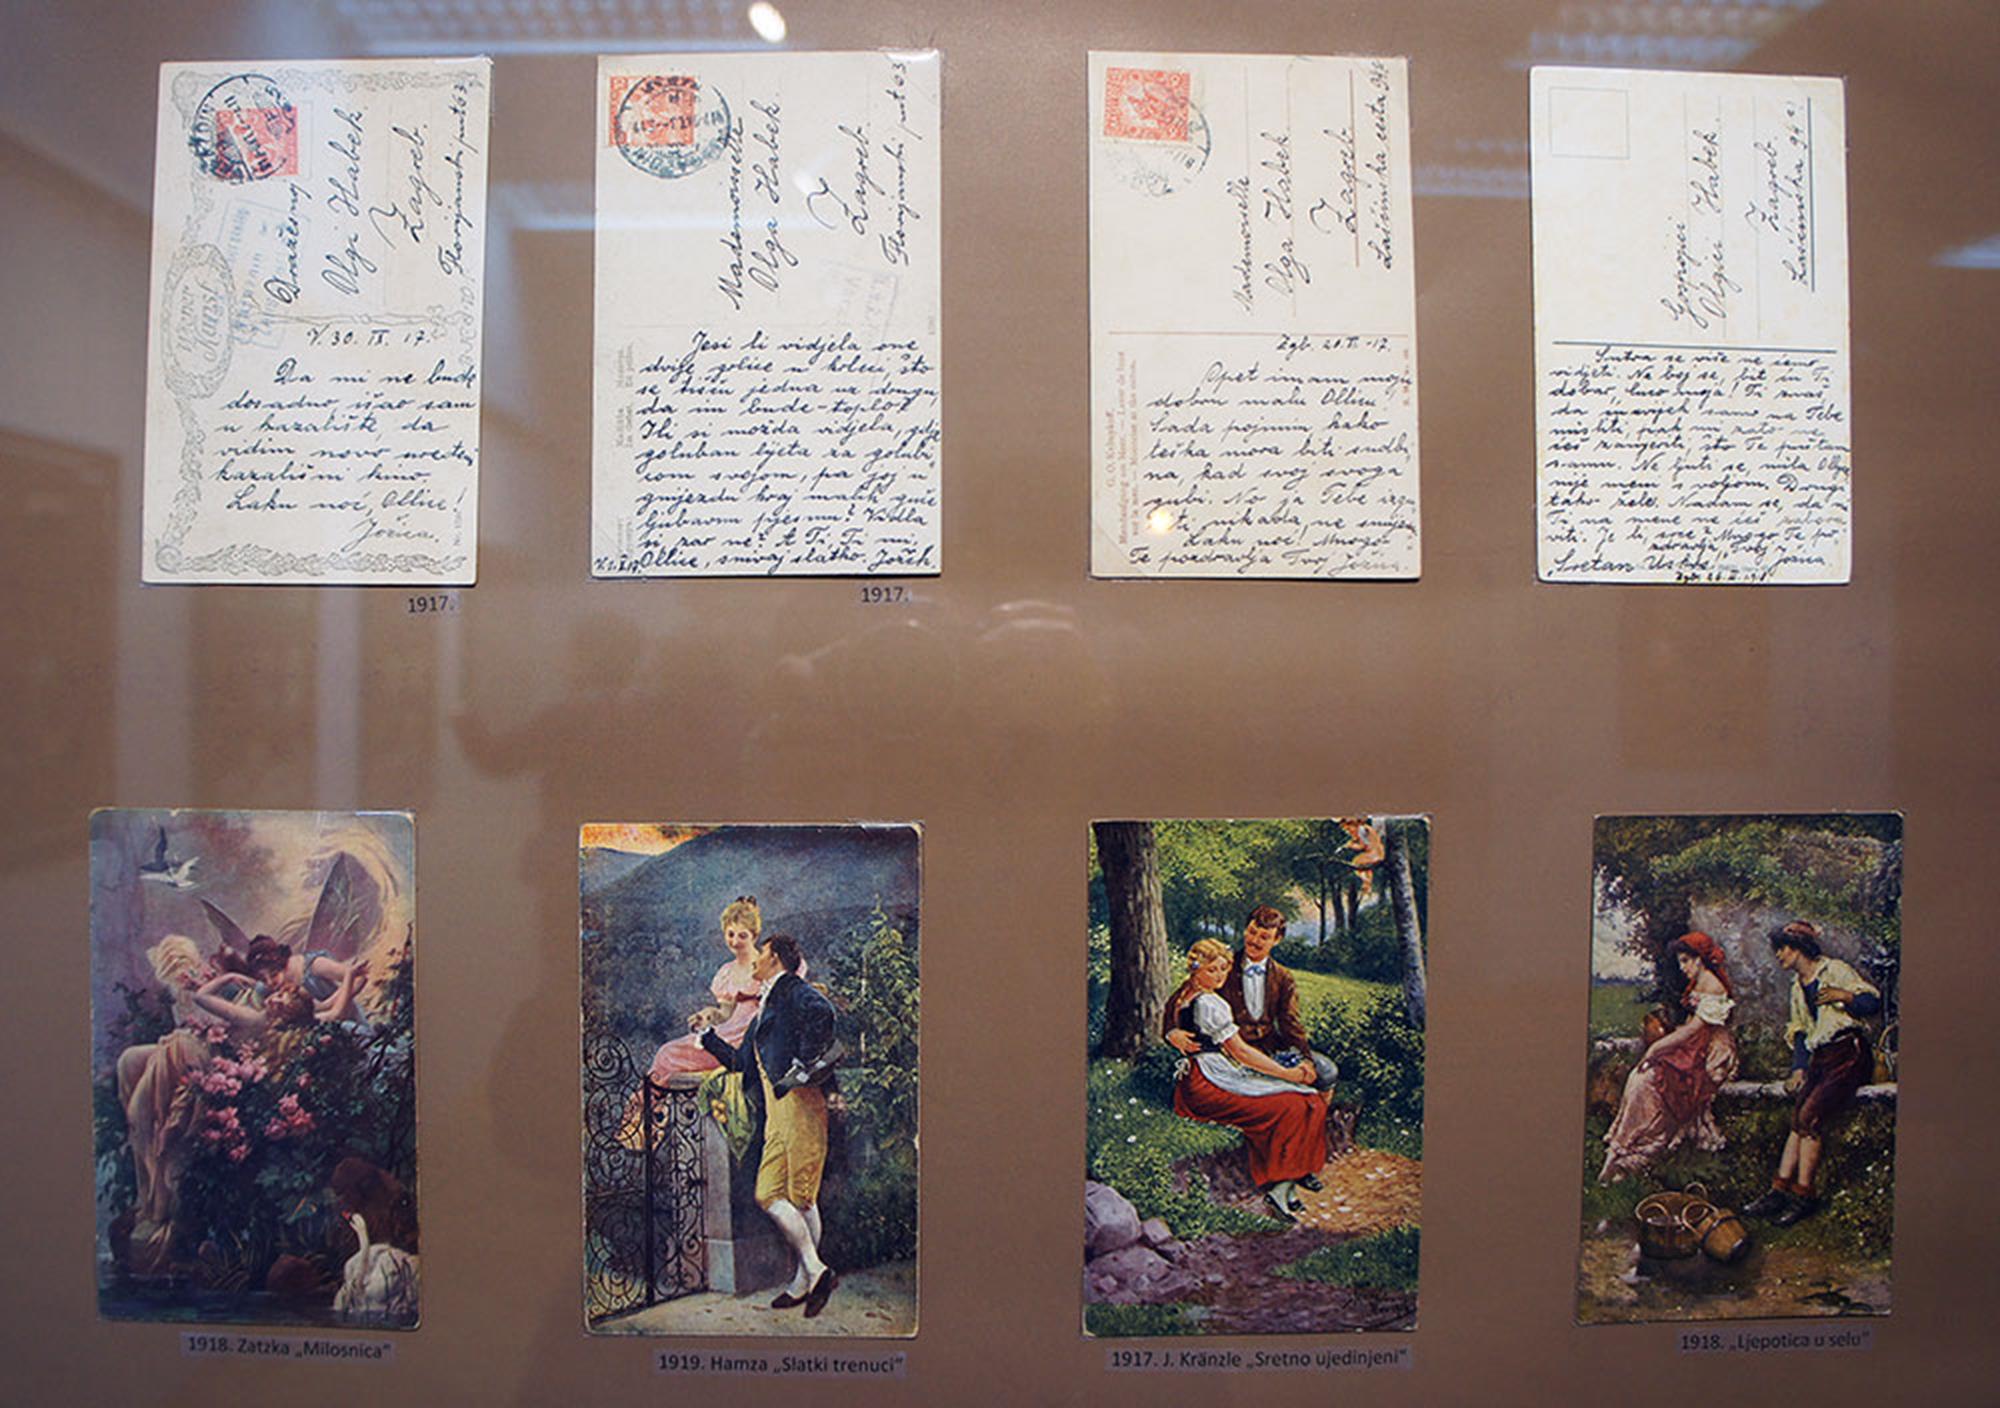 Wiener
Kunst
Dražesnoj
Olgi Habek
Zagreb.
Florijanski put 63
V. 30. IX. 17.
Da mi ne bude
dosadno išao sam
u kazalište, da
vidim novo uređeni
kazališni kino.
Laku noć, Ollice!
Jožica.
1917.
Mademoiselle
Olga Habek.
Zagreb.
Florijanski put 63
Jesi li vidjela one
dvije golice u kolici, što
se tišću jedna uz drugu,
da im bude toplo?
Ili si možda vidjela, gdje
goluban lijeta za golubi
com svojom, pa joj u
gnijezdu kraj malih guče
ljubavnu pjesmu? Vidla
si zar ne? A Ti, Ti mi,
Ollice, snivaj slatko. Jožek.
1917.
Mademoiselle
Olga Habek
Zagreb
Laščinska cesta 94
Zgb. 20. -17.
Opet imam moju
dobru malu Ollicu.
Sada pojmim kako
teška mora biti sudbi
na, kad svoj svoga
gubi. No ja Tebe izgu
biti nikada, ne smijem
Laku noć! Mnogo
Te pozdravlja Tvoj Jožica.
Gospojici
Olgici Habek.
Zagreb.
Laščinska 94
Sutra se više ne ćemo
vidjeti. Ne boj se, bit ću Ti
dobar, luco moja! Ti znaš,
da uvijek samo na Tebe
misliti pak mi zato ne
ćeš zamjeriti, što Te puštam
samu. Ne ljuti se, mila
nije meni s voljom. Drugi
tako žele. Nadam se, da
Ti na mene ne ćeš zabora
viti. Je li, srce? Mnogo Te po
zdravlja Tvoj Jožica.
Sretan Uskrs
1918. Zatzka „Milosnica“
1919. Hamza „Slatki trenuci“
1917. J. Kränzle „Sretno ujedinjeni“
1918. „Ljepotica u selu“